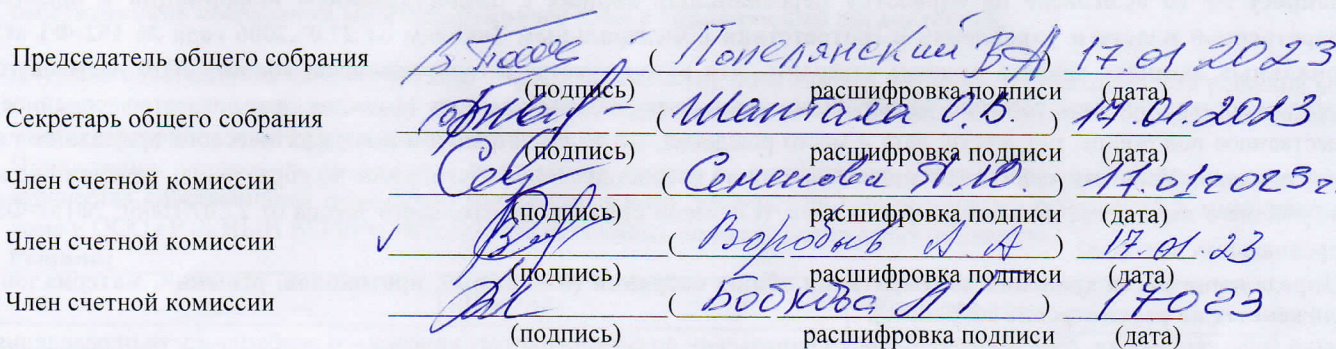 Председатель общего собрания ( Попелянский В.А ) 17 01 2023
(подпись) расшифровка подписи (дата)
Секретарь общего собрания ( Шантала О.В. ) 17.01.2023
(подпись) расшифровка подписи (дата)
Член счетной комиссии ( Семенова ) 17.01 2023 г.
(подпись) расшифровка подписи (дата)
Член счетной комиссии ( Воробьев А.А ) 17.01.23
(подпись) расшифровка подписи (дата)
Член счетной комиссии ( Бобкова Л Г ) 17023
(подпись) расшифровка подписи (дата)